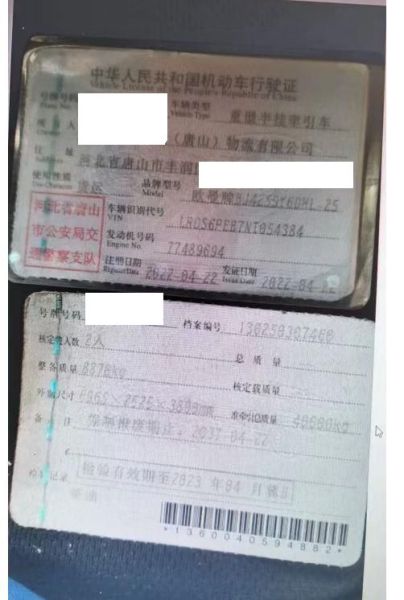 中华人民共和国机动车行驶证
Vehicle License of the People's Republic of China
号牌号码
车辆类型 重型半挂牵引车
Vehicle Type
所有人 （唐山）物流有限公司
住址 河北省唐山市丰润
使用性质 货运 品牌型号 欧曼牌BJ4259Y6DHL-25
Use Character
河北省唐山
市公安局交
通警察支队
车辆识别代号
VIN
发动机号码 77489694
Engine No.
注册日期 2022-04-22 发证日期 2022-04
Register Date Issue Date
号牌号码 档案编号
核定载人数 2人 总质量
整备质量 8870kg 核定载质量
外廓尺寸 准牵引总质量 40000kg
备注 强制报废期止：2037-04-22
检验记录 检验有效期至2023年04月
柴油
*1360040594882*